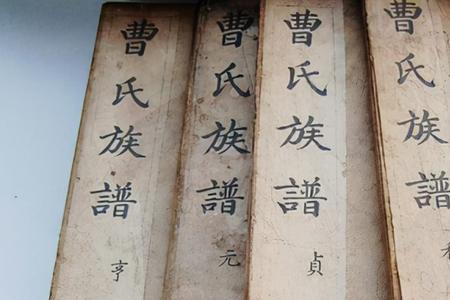 曹氏族譜 亨
曹氏族譜 元
曹氏族譜 貞
曹氏族譜